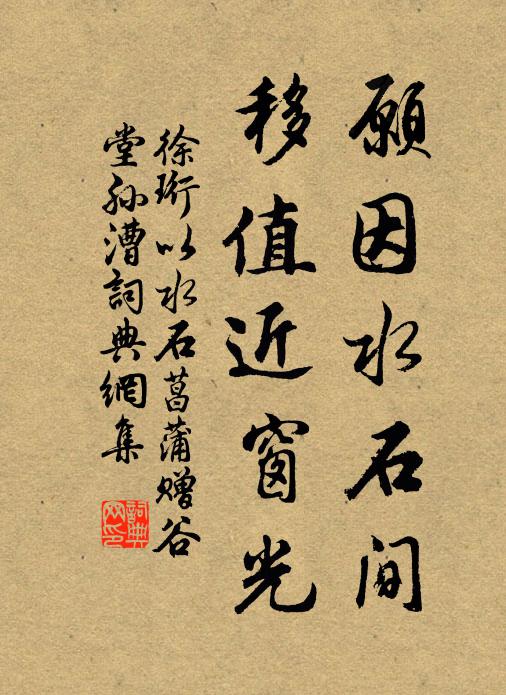 願因水石间
移值近窗光
徐珩以水石菖蒲赠谷
堂孙漕詞典網集
詞典
网印